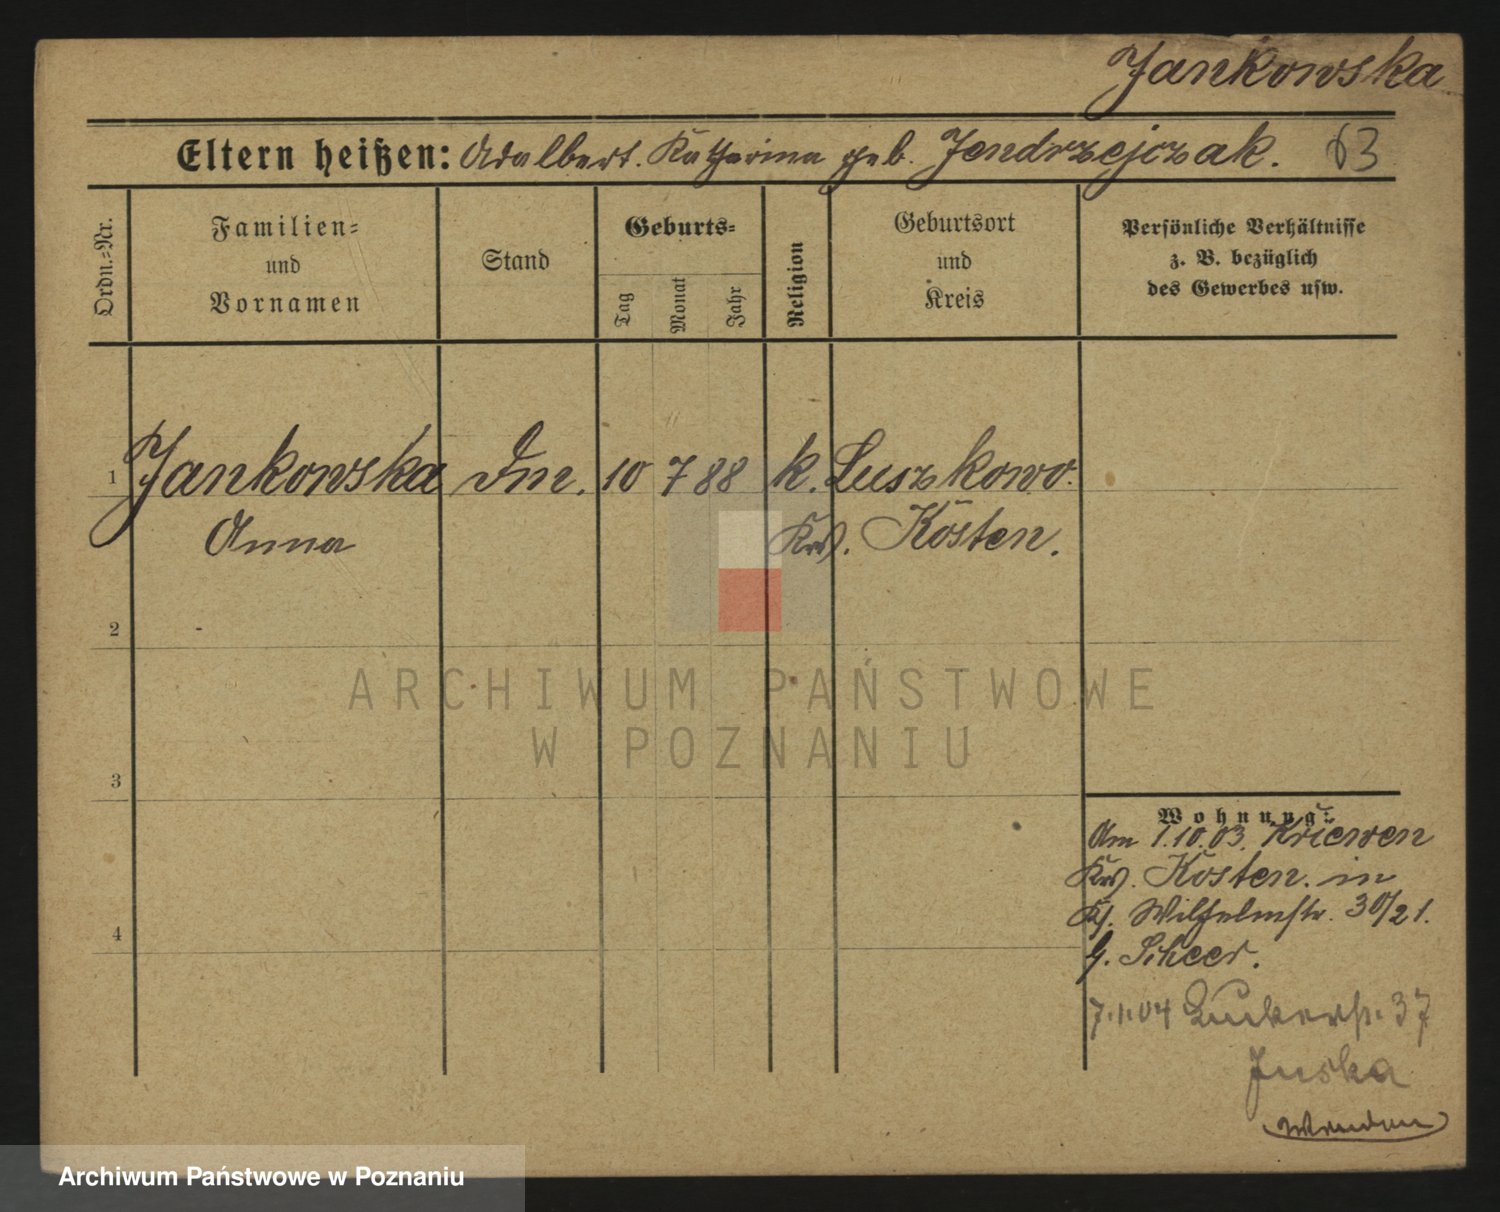 Jankowska
Eltern heißen: Adalbert. Katharina geb. Jendrzejczak. 63
Ordn.=Nr.
Familien=
und
Vornamen
Stand
Geburts=
Tag
Monat
Jahr
Religion
Geburtsort
und
Kreis
Persönliche Verhältnisse
z. B. bezüglich
des Gewerbes usw.
1 Jankowska Dm. 10 7 88 k. Luszkowo.
Anna Krs. Kosten.
2
3
4
Wohnung:
Am 1.10.03. Kriewen
Krs. Kosten. in
Wilhelmstr. 30/21.
b. Scheer.
7.1.04 37
ARCHIWUM PAŃSTWOWE
W POZNANIU
Archiwum Państwowe w Poznaniu